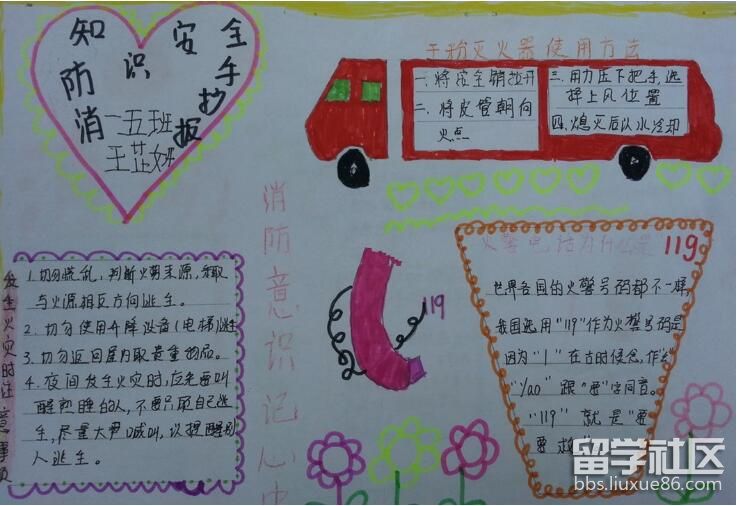 消防知识安全手抄报
一五班
王芷妍
干粉灭火器使用方法
一、将保全销拉开
二、将皮管朝向
火点
三、用力压下把手,选
择上风位置
四、熄灭后以水冷却
消防意识记心中
发生火灾时注意事项
1.切勿慌乱,判断火势来源,采取
与火源相反方向逃生。
2.切勿使用升降设备(电梯)逃生
3.切勿返回屋内取贵重物品。
4.夜间发生火灾时,应先要叫
醒熟睡的人,不要只顾自己逃
生,尽量大声喊叫,以提醒别
人逃生。
119
火警电话为什么是119
世界各国的火警号码都不一样
我国选用"119"作为火警号码是
因为"1"在古时候念作幺
"Yao"跟"要"字同音。
"119"就是"要
要救
留学社区
bbs.liuxue86.com